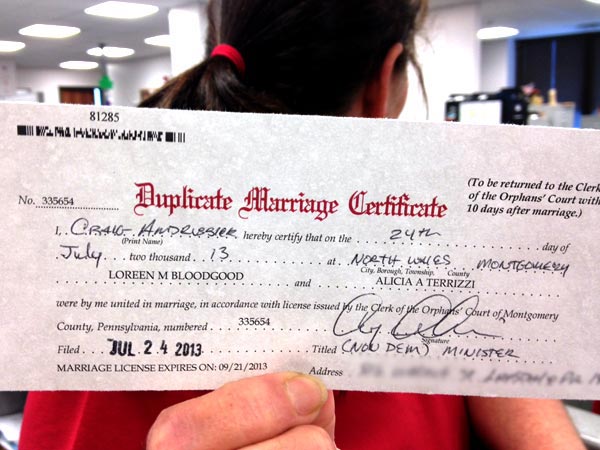 81285
No. 335654
Duplicate Marriage Certificate
(To be returned to the Clerk
of the Orphans' Court with
10 days after marriage.)
I, CRAIG ANDRUSSIER hereby certify that on the 24th day of
(Print Name)
July two thousand 13 at NORTH WALES MONTGOMERY
City, Borough, Township, County
LOREEN M BLOODGOOD and ALICIA A TERRIZZI
were by me united in marriage, in accordance with license issued by the Clerk of the Orphans' Court of Montgomery
County, Pennsylvania, numbered 335654
Signature
Filed JUL 24 2013 Titled (NON DEM) MINISTER
MARRIAGE LICENSE EXPIRES ON: 09/21/2013 Address